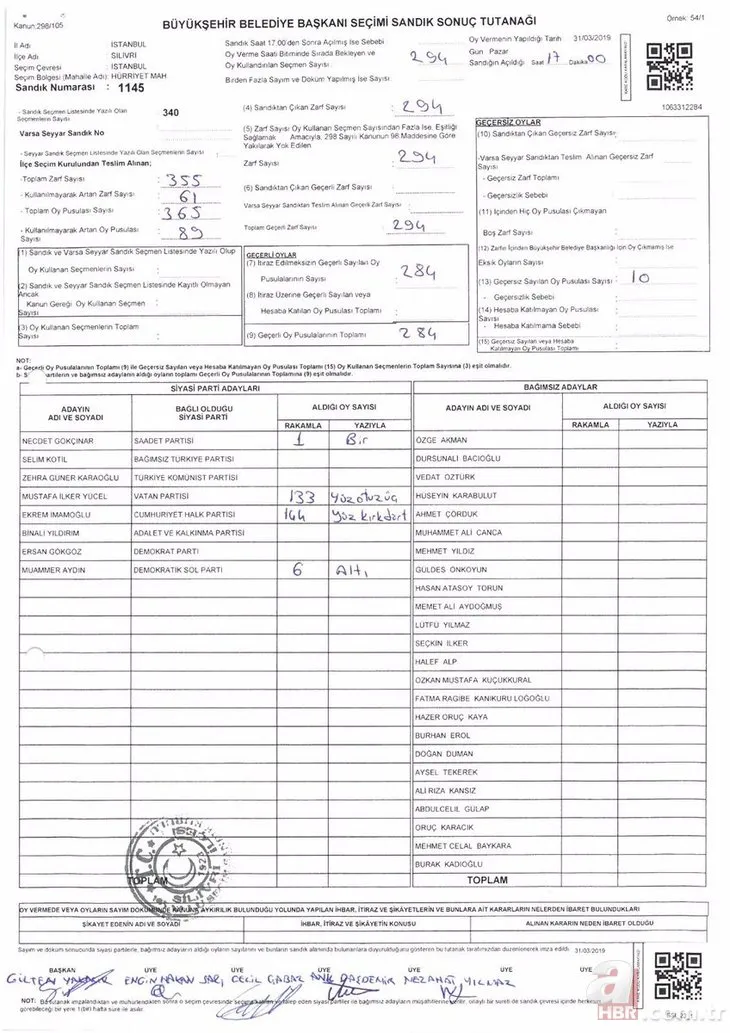 Kanun:298/105
BÜYÜKŞEHİR BELEDİYE BAŞKANI SEÇİMİ SANDIK SONUÇ TUTANAĞI
Örnek: 54/1
İl Adı : İSTANBUL
İlçe Adı : SİLİVRİ
Seçim Çevresi : İSTANBUL
Seçim Bölgesi (Mahalle Adı) : HÜRRİYET MAH
Sandık Numarası : 1145
Sandık Saat 17:00'den Sonra Açılmış İse Sebebi
Oy Verme Saati Bitiminde Sırada Bekleyen ve
Oy Kullandırılan Seçmen Sayısı : 294
Birden Fazla Sayım ve Döküm Yapılmış İse Sayısı :
Oy Vermenin Yapıldığı Tarih 31/03/2019
Gün Pazar
Sandığın Açıldığı Saat 17 Dakika 00
1063312284
- Sandık Seçmen Listesinde Yazılı Olan
Seçmenlerin Sayısı : 340
Varsa Seyyar Sandık No
- Seyyar Sandık Seçmen Listesinde Yazılı Olan Seçmenlerin Sayısı :
İlçe Seçim Kurulundan Teslim Alınan;
-Toplam Zarf Sayısı : 355
- Kullanılmayarak Artan Zarf Sayısı : 61
- Toplam Oy Pusulası Sayısı : 365
- Kullanılmayarak Artan Oy Pusulası
Sayısı : 89
(4) Sandıktan Çıkan Zarf Sayısı : 294
(5) Zarf Sayısı Oy Kullanan Seçmen Sayısından Fazla İse, Eşitliği
Sağlamak Amacıyla, 298 Sayılı Kanunun 98.Maddesine Göre
Yakılarak Yok Edilen
Zarf Sayısı : 294
(6) Sandıktan Çıkan Geçerli Zarf Sayısı :
Varsa Seyyar Sandıktan Teslim Alınan Geçerli Zarf Sayısı :
Toplam Geçerli Zarf Sayısı : 294
GEÇERSİZ OYLAR
(10) Sandıktan Çıkan Geçersiz Zarf Sayısı :
-Varsa Seyyar Sandıktan Teslim Alınan Geçersiz Zarf
Sayısı :
- Geçersiz Zarf Toplamı :
- Geçersizlik Sebebi :
(11) İçinden Hiç Oy Pusulası Çıkmayan
Boş Zarf Sayısı :
(12) Zarfın İçinden Büyükşehir Belediye Başkanlığı İçin Oy Çıkmamış İse
Eksik Oyların Sayısı :
(13) Geçersiz Sayılan Oy Pusulası Sayısı : 10
- Geçersizlik Sebebi :
(14) Hesaba Katılmayan Oy Pusulası
Sayısı :
- Hesaba Katılmama Sebebi :
(15) Geçersiz Sayılan veya Hesaba
Katılmayan Oy Pusulası Toplamı :
(1) Sandık ve Varsa Seyyar Sandık Seçmen Listesinde Yazılı Olup
Oy Kullanan Seçmenlerin Sayısı :
(2) Sandık ve Seyyar Sandık Seçmen Listesinde Kayıtlı Olmayan
Ancak
Kanun Gereği Oy Kullanan Seçmen
Sayısı :
(3) Oy Kullanan Seçmenlerin Toplam
Sayısı :
GEÇERLİ OYLAR
(7) İtiraz Edilmeksizin Geçerli Sayılan Oy
Pusulalarının Sayısı : 284
(8) İtiraz Üzerine Geçerli Sayılan veya
Hesaba Katılan Oy Pusulası Toplamı :
(9) Geçerli Oy Pusulalarının Toplamı : 284
NOT:
a- Geçerli Oy Pusulalarının Toplamı (9) ile Geçersiz Sayılan veya Hesaba Katılmayan Oy Pusulası Toplamı (15) Oy Kullanan Seçmenlerin Toplam Sayısına (3) eşit olmalıdır.
partilerin ve bağımsız adayların aldığı oyların toplamı Geçerli Oy Pusulalarının Toplamına (9) eşit olmalıdır.
SİYASİ PARTİ ADAYLARI
BAĞIMSIZ ADAYLAR
ADAYIN ADI VE SOYADI
BAĞLI OLDUĞU SİYASİ PARTİ
ALDIĞI OY SAYISI
RAKAMLA YAZIYLA
ADAYIN ADI VE SOYADI
ALDIĞI OY SAYISI
RAKAMLA YAZIYLA
NECDET GÖKÇINAR SAADET PARTİSİ 1 Bir ÖZGE AKMAN
SELİM KOTİL BAĞIMSIZ TÜRKİYE PARTİSİ DURSUNALİ BACIOĞLU
ZEHRA GÜNER KARAOĞLU TÜRKİYE KOMÜNİST PARTİSİ VEDAT ÖZTÜRK
MUSTAFA İLKER YÜCEL VATAN PARTİSİ 133 Yüzotuzüç HÜSEYİN KARABULUT
EKREM İMAMOĞLU CUMHURİYET HALK PARTİSİ 144 Yüz kırkdört AHMET ÇÖRDÜK
BİNALİ YILDIRIM ADALET VE KALKINMA PARTİSİ MUHAMMET ALİ CANCA
ERSAN GÖKGÖZ DEMOKRAT PARTİ MEHMET YILDIZ
MUAMMER AYDIN DEMOKRATİK SOL PARTİ 6 Altı GÜLDES ÖNKOYUN
HASAN ATASOY TORUN
MEMET ALİ AYDOĞMUŞ
LÜTFÜ YILMAZ
SEÇKİN İLKER
HALEF ALP
ÖZKAN MUSTAFA KÜÇÜKKURAL
FATMA RAGİBE KANIKURU LOĞOĞLU
HAZER ORUÇ KAYA
BURHAN EROL
DOĞAN DUMAN
AYSEL TEKEREK
ALİ RIZA KANSIZ
ABDULCELİL GÜLAP
ORUÇ KARACIK
MEHMET CELAL BAYKARA
BURAK KADIOĞLU
TOPLAM
TOPLAM
T.C.
SİLİVRİ
OY VERMEDE VEYA OYLARIN SAYIM DÖKÜMÜNDE KANUNA AYKIRILIK BULUNDUĞU YOLUNDA YAPILAN İHBAR, İTİRAZ VE ŞİKAYETLERİN VE BUNLARA AİT KARARLARIN NELERDEN İBARET BULUNDUKLARI
ŞİKAYET EDENİN ADI VE SOYADI
İHBAR, İTİRAZ VE ŞİKAYETİN KONUSU
ALINAN KARARIN NEDEN İBARET OLDUĞU
31/03/2019
BAŞKAN ÜYE ÜYE ÜYE ÜYE ÜYE ÜYE
ENGİN HAKAN
CECİL
NEZAHAT YILMAZ
a
HBR.com.tr